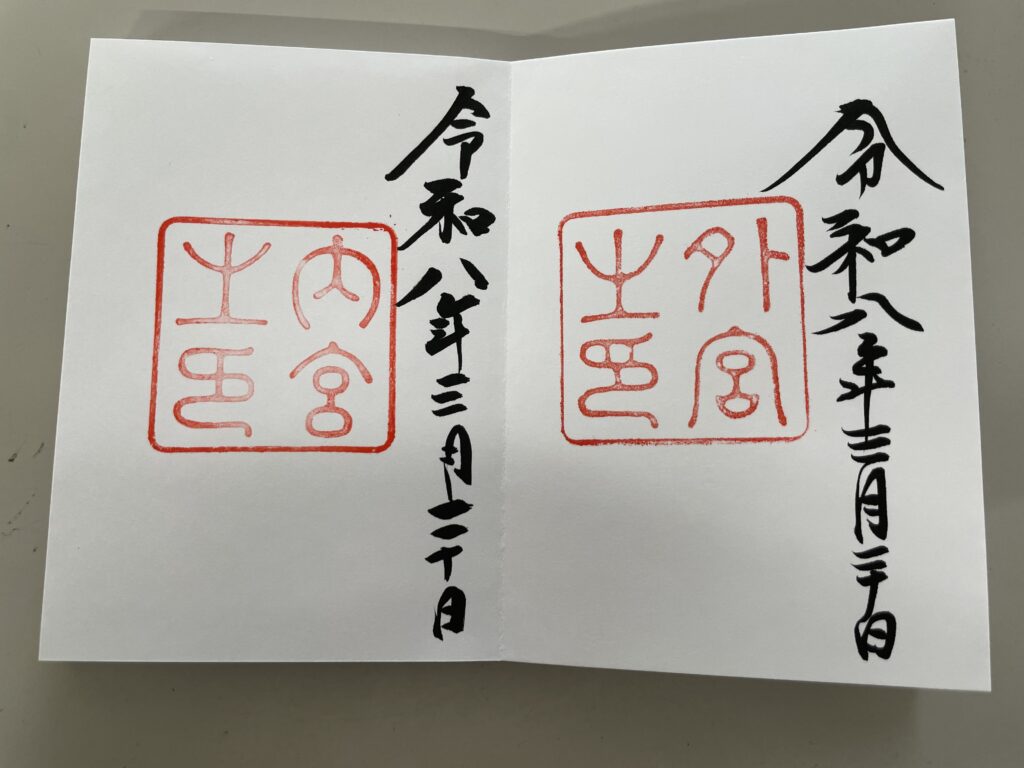 令和八年三月二十日
外宮
之印
令和八年三月二十日
内宮
之印